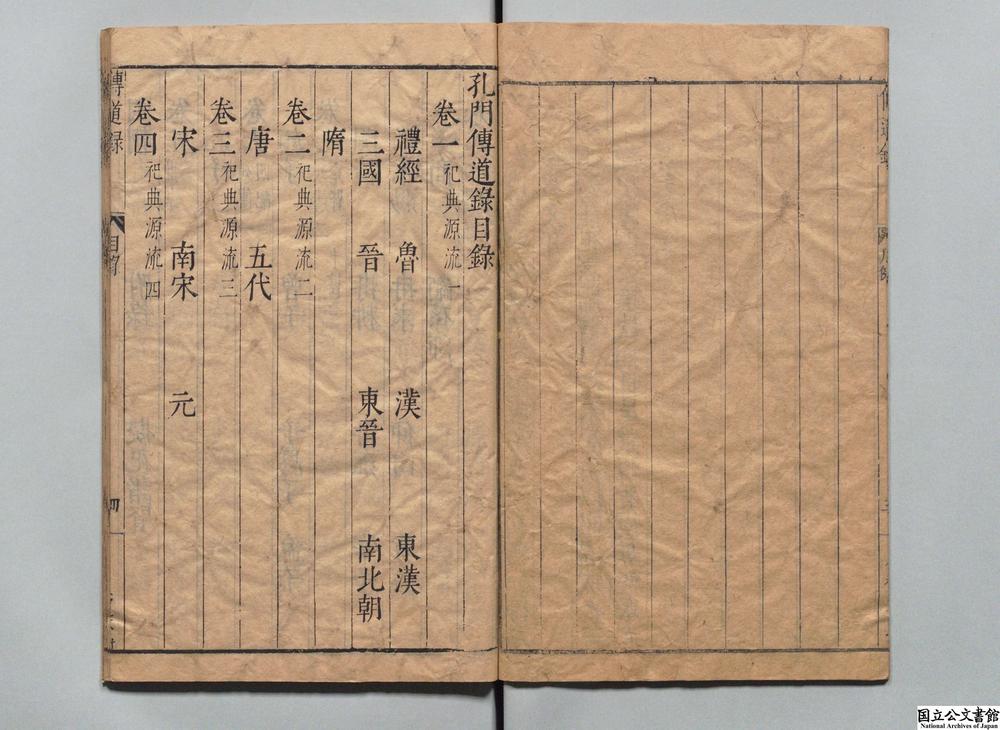 孔門傳道錄目錄
卷一 祀典源流一
禮經 魯 漢 東漢
三國 晉 東晉 南北朝
隋
卷二 祀典源流二
唐 五代
卷三 祀典源流三
宋 南宋 元
卷四 祀典源流四
傳道錄 目錄 四
国立公文書館
National Archives of Japan